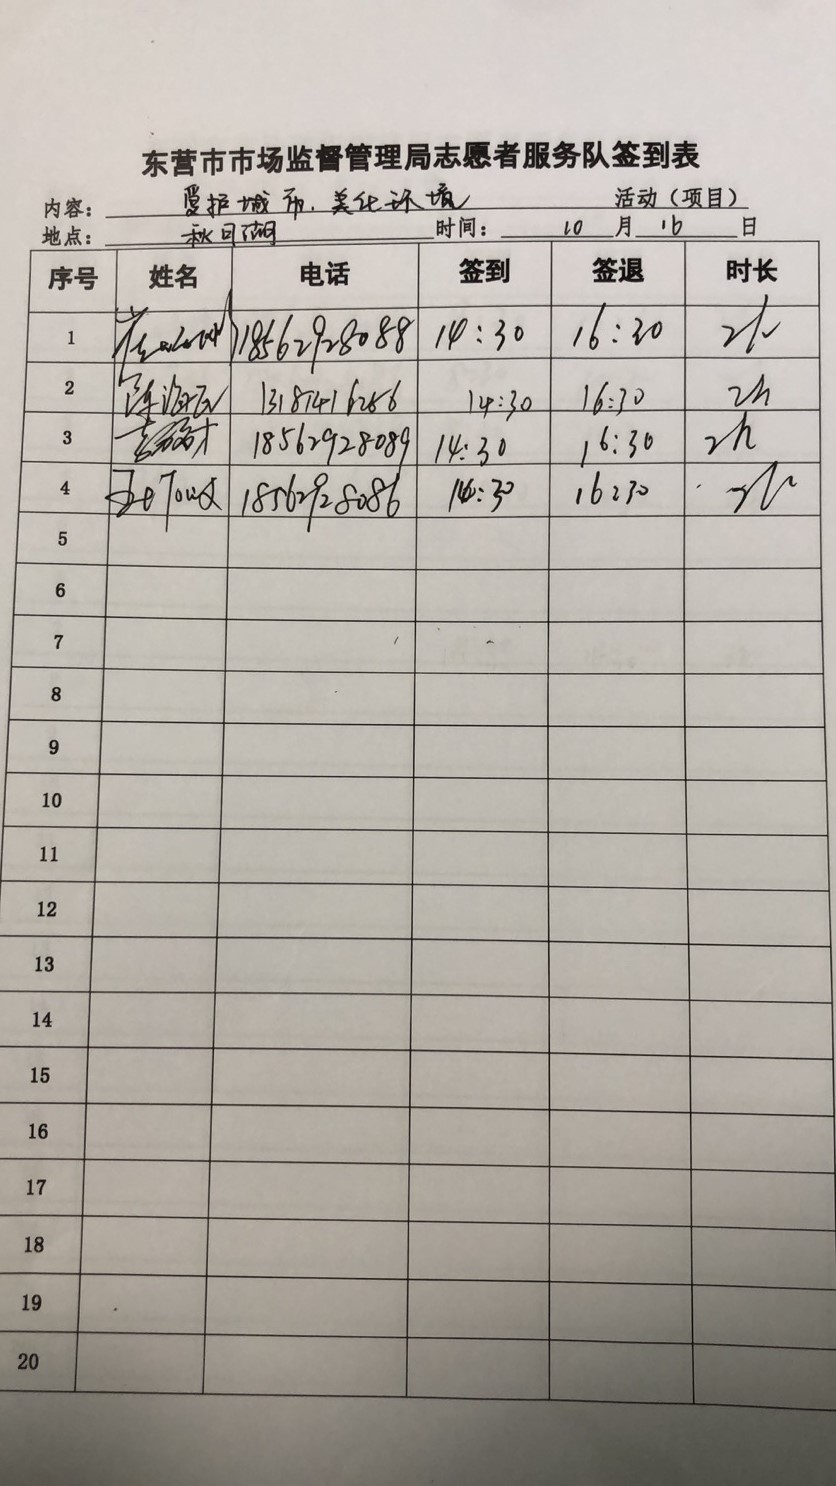 东营市市场监督管理局志愿者服务队签到表
内容： 爱护城市、美化环境 活动（项目）
地点： 秋月湖 时间： 10 月 16 日
序号 姓名 电话 签到 签退 时长
1 18562928088 14:30 16:30 2h
2 14:30 16:30 2h
3 18562928089 14:30 16:30 2h
4 18562928086 14:30 16:30 2h
5
6
7
8
9
10
11
12
13
14
15
16
17
18
19
20